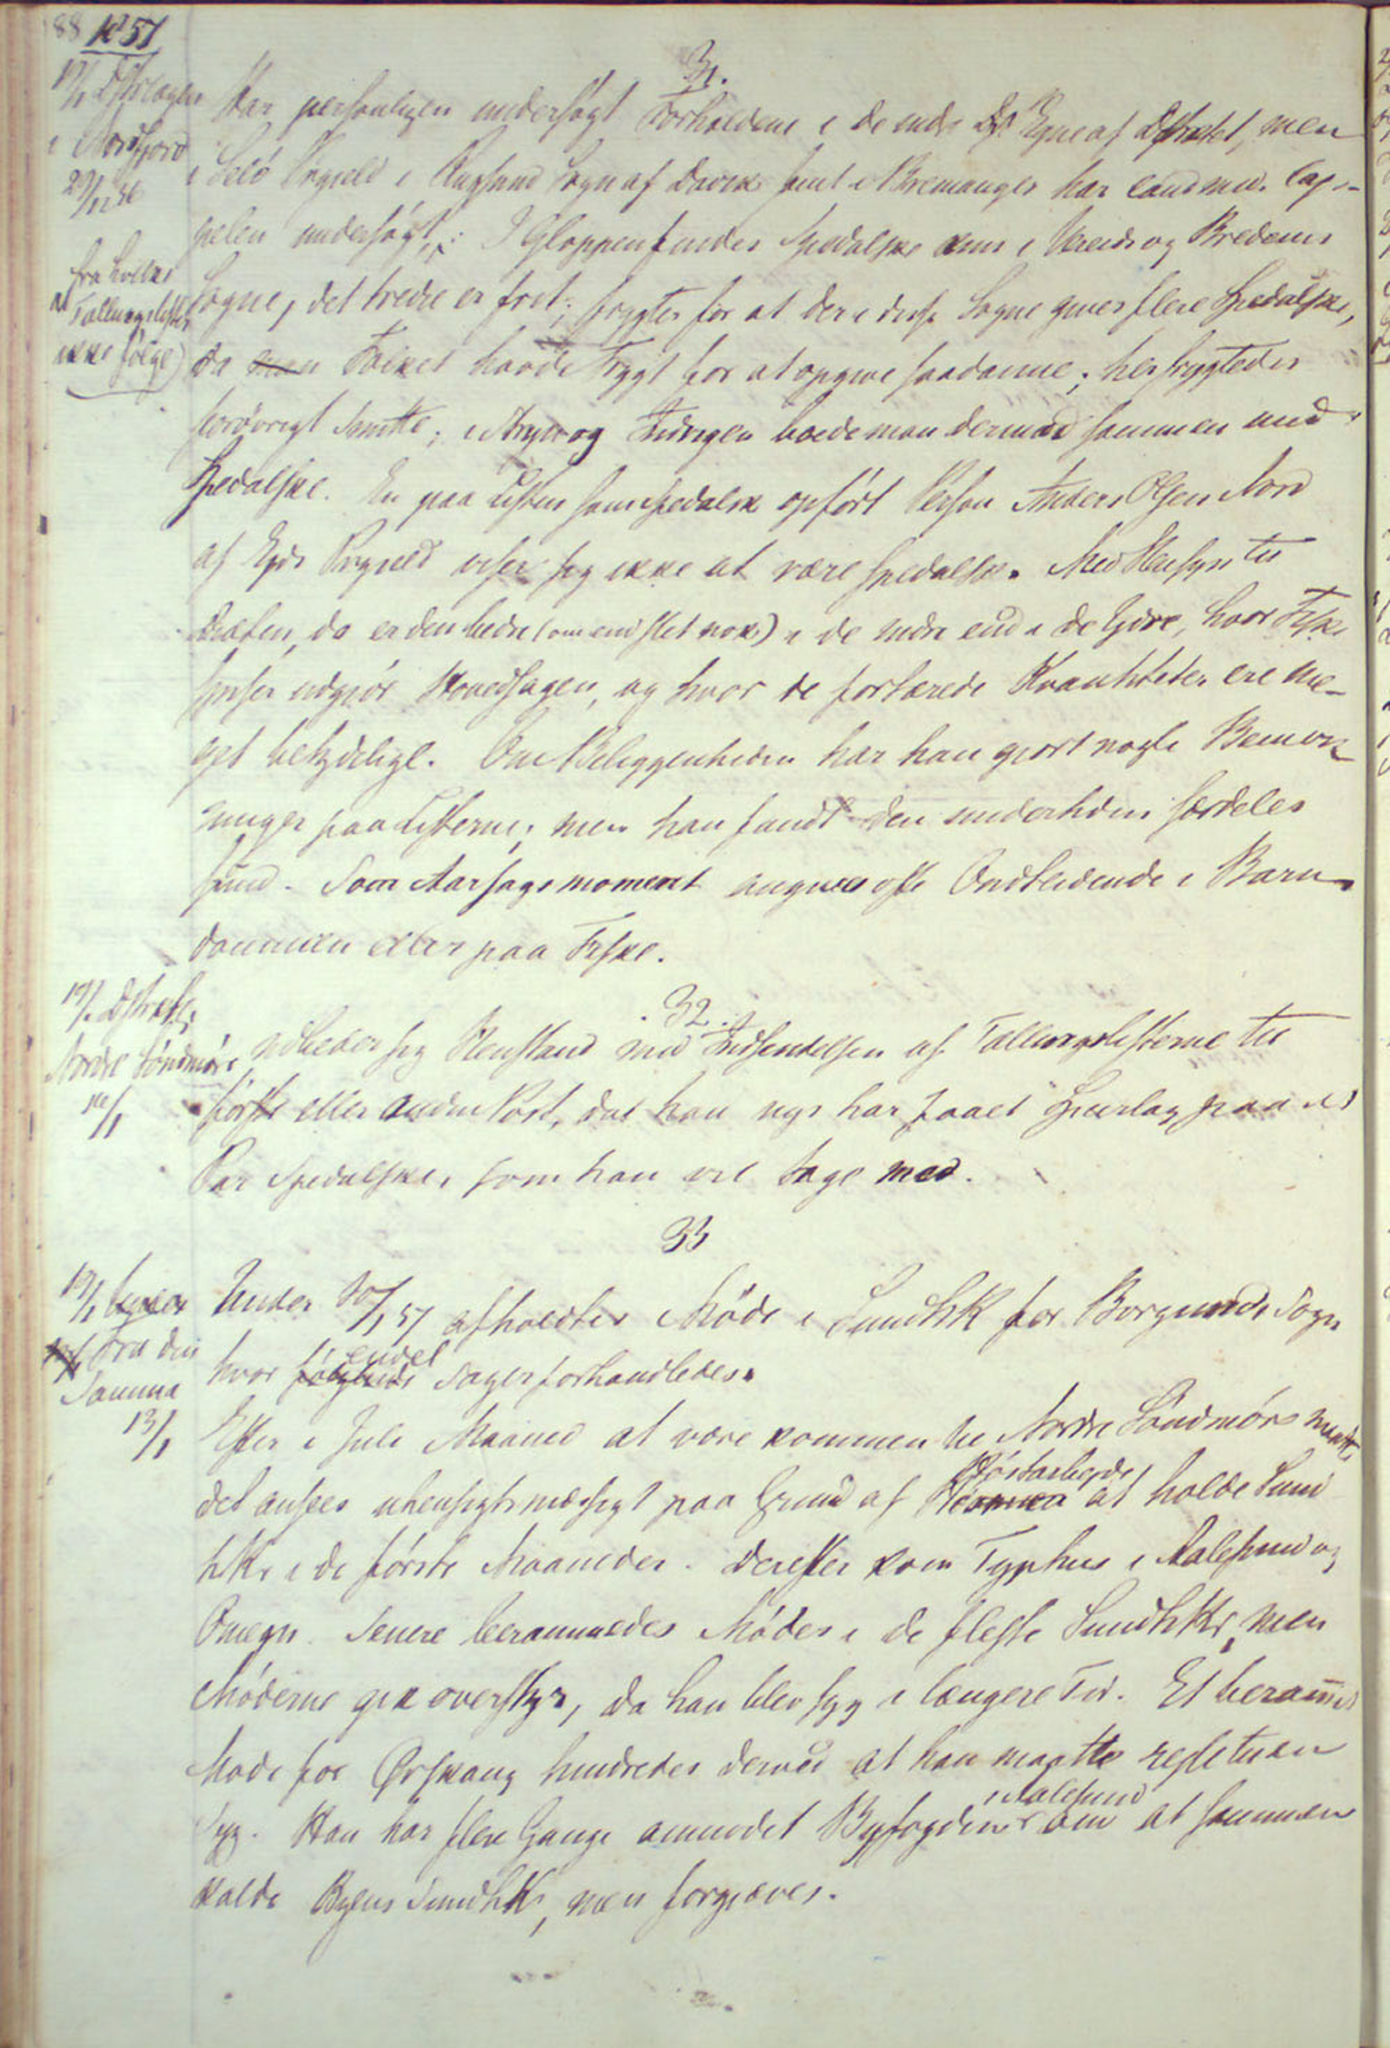 88 No 57
31.
19/1 Dstrlagen
i Nordfjord
29/12 56
fra hvilke
Tællingslister
ikke følge)
Har personligen undersøgt Forholdene i de indre Egne af Dstrktet, men
i Selø Prgjeld i Rugsund Sogn af Davik samt i Bremanger har Landmd. Cap-
pelen undersøgt. I Gloppen findes Spedalske kun i Vereids og Bredems
Sogne, det tredie er frit; frygter for at der i disse Sogne gives flere Spedalske,
da Folket havde Frygt for at opgive saadanne; her frygtedes
forøvrigt Smitte; i og Indvigen boede man dermod sammen med
Spedalske. En paa Listen som spedalsk opført Person Anders Olsen Nord
af Eyds Prgjeld viser sig ikke at være spedalsk. Med Hensyn til
Diæten, da er den bedre (om end slet nok) i de indre end i de Ydre, hvor Fiske
spiser udgjør Hovedsagen, og hvor de fortærede Kvantiteter ere me-
get betydelige. Om Beliggenheden har han gjort nogle Bemærk
ninger paa Listerne; men han fandt den undertiden særdeles
sund. Som Aarsagsmoment angives ofte Ondtlidende i Barn
dommen eller paa Fiske.
32.
19/1 Dstrktsl.
Nordre Søndmøre
14/1
udbeder sig Henstand med Indsendelsen af Tællingslisterne til
første eller anden Post, da han nys har faaet Spurlag paa et
Par Spedalske, som han vil tage med.
33
19/1
fra den
Samme
13/1
Under 10/1 57 afholdtes Møde i SundhK for Borgunds Sogn
hvor endel Sager forhandledes.
Efter i Juli Maaned at være kommen til Nordre Søndmøre maatte
det ansees uhensigtsmæssigt paa Grund af Høstarbeyde at holde Sund
hKr i de første Maaneder. Derefter kom Typhus i Aalesund og
Omegn. Senere berammedes Møder i de fleste SundhKr, men
Møderne gik overstyr, da han blev syg i længere Tid. Et berammet
Møde for Ørskoug hindredes derved at han maatte rejse til en
Syg. Han har flere Gange anmodet Byfogden i Aalesund om at sammen
kalde Byens SundhK, men forgjæves.